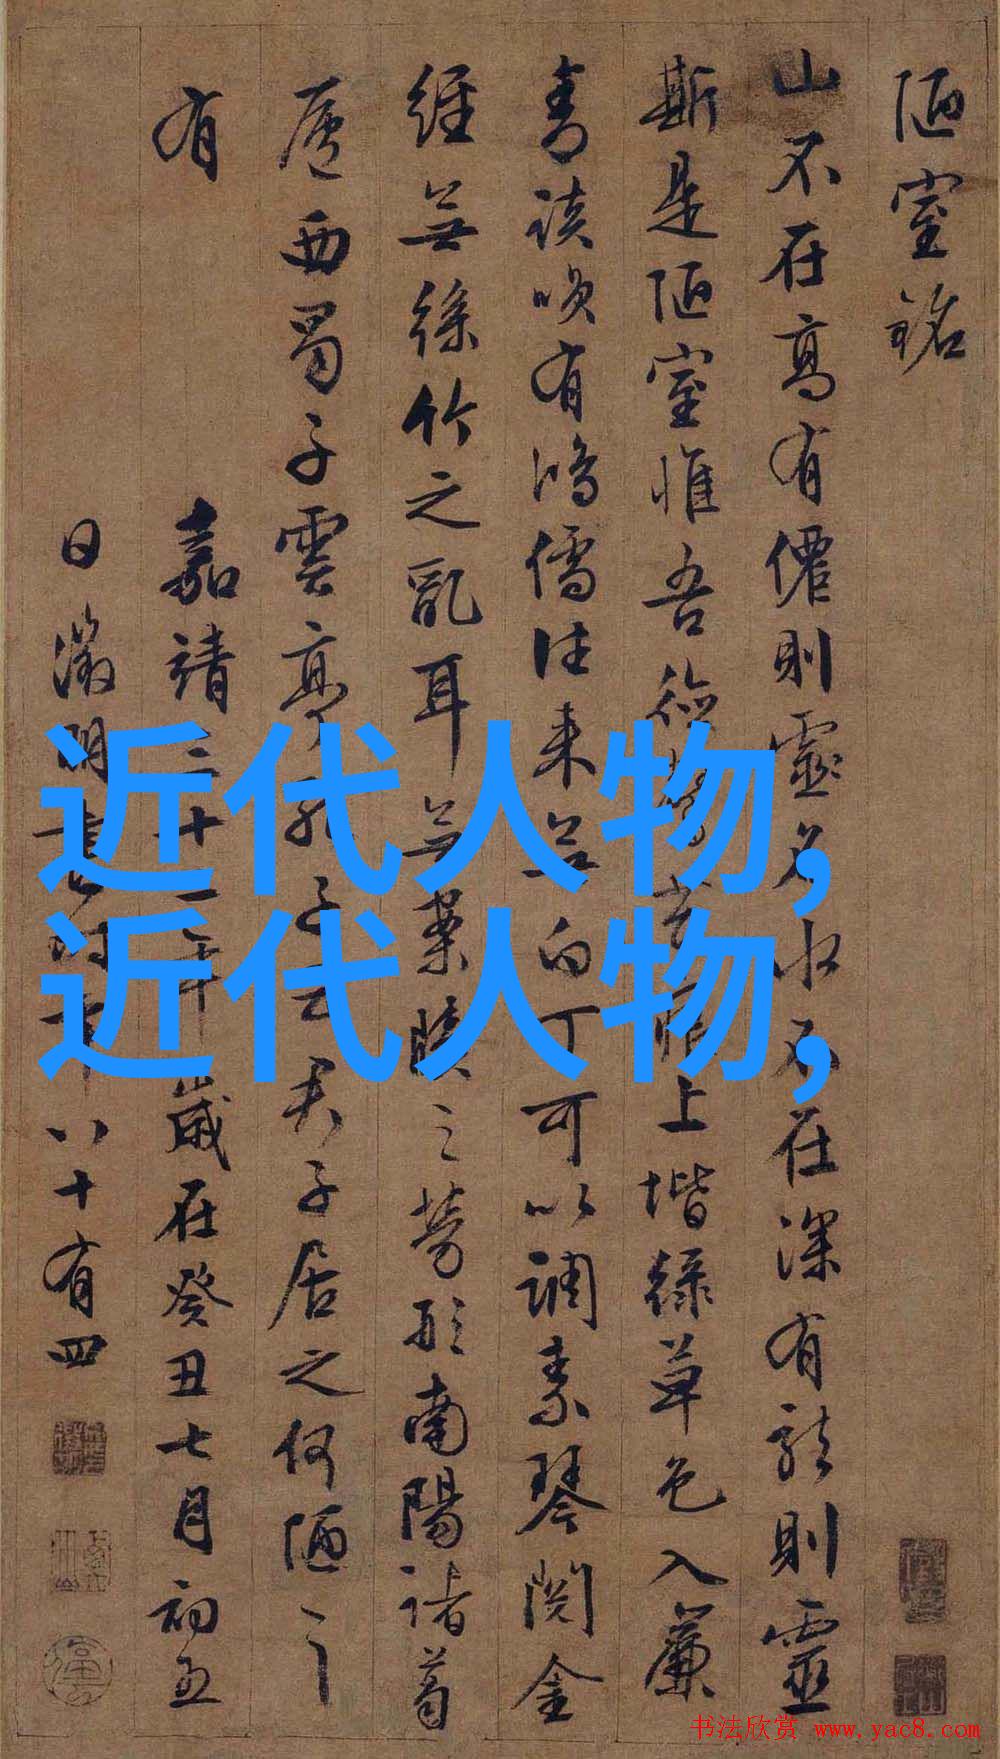 陋室銘
山不在高有僊則靈名水不在深有龍則靈
斯是陋室惟吾德馨苔痕上堦緑草色入簾
青談咲有鴻儒往来無白丁可以調素琴閱金
經無絲竹之亂耳無案牘之勞形南陽諸葛
廬西蜀子雲亭孔子云君子居之何陋之
有
嘉靖三十二年歲在癸丑七月初五
日徵明書時年八十有四
近代人物,
近代人物,
书法欣赏 www.yac8.com